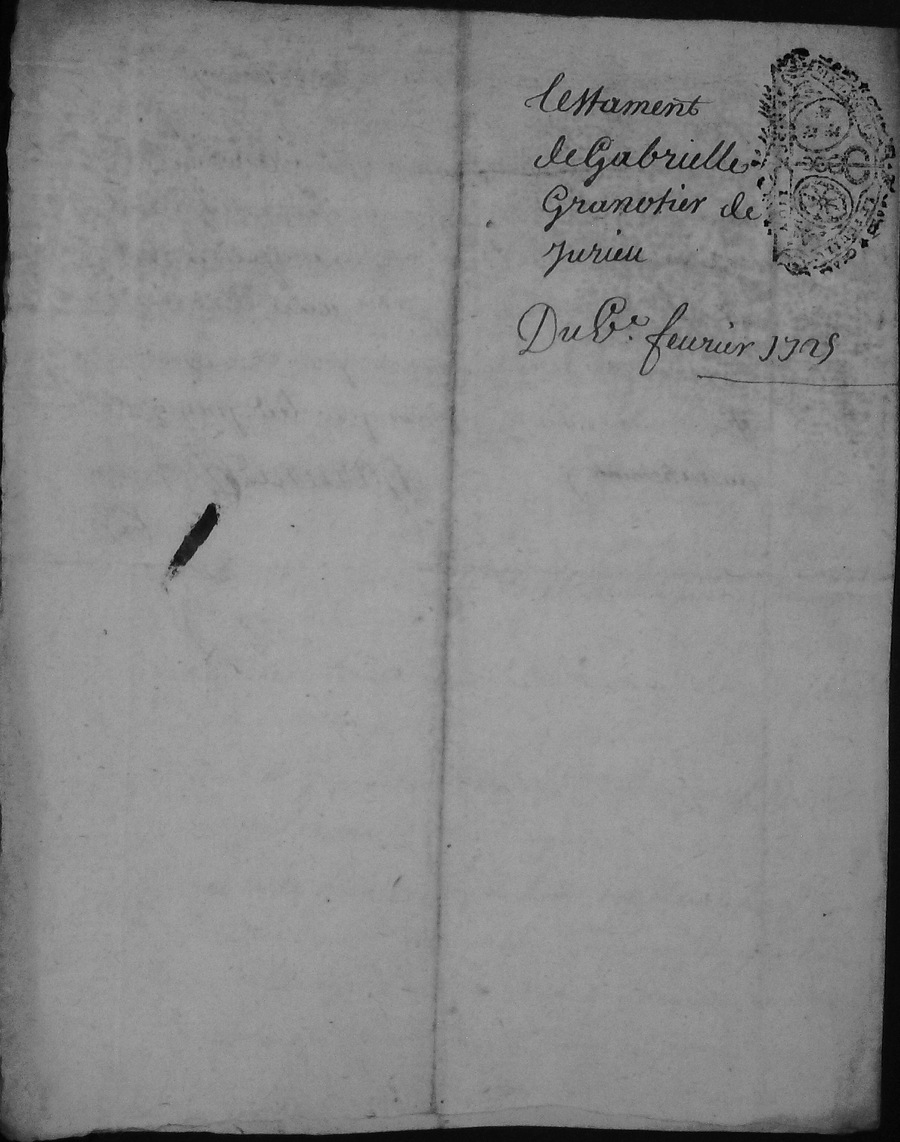 testament
de Gabrielle
Granotier de
Jurieu
Du 6e. feurier 1725